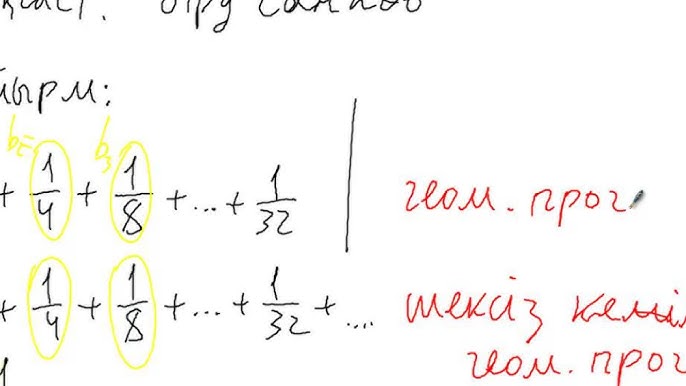 йырм:
b₂ b₃
+ 1/4 + 1/8 + ... + 1/32 геом. прог
+ 1/4 + 1/8 + ... + 1/32 + ... шексіз кемім
геом. прог